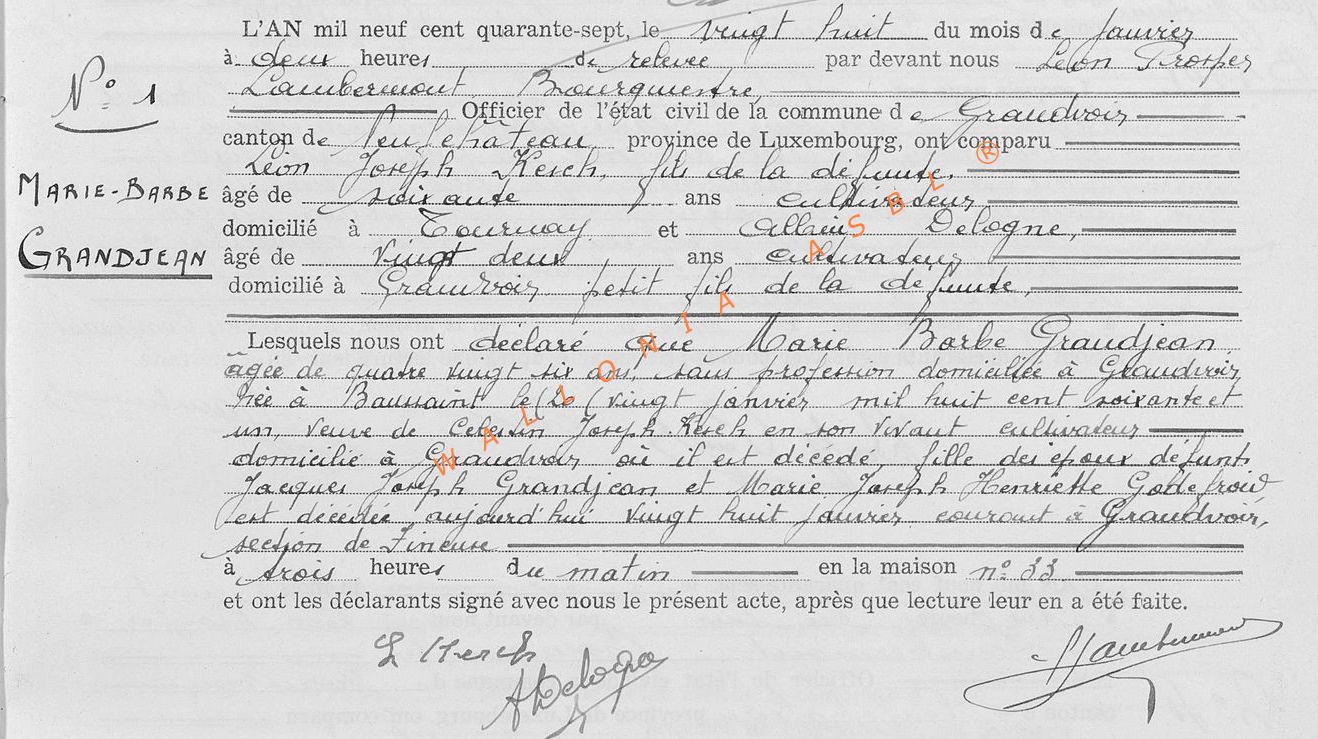 L'AN mil neuf cent quarante-sept, le vingt huit du mois de janvier
à deux heures de relevée par devant nous Léon Prosper
Lambermont Bourgmestre,
Officier de l'état civil de la commune de Grandvoir
canton de Neufchâteau province de Luxembourg, ont comparu
Léon Joseph Kesch, fils de la défunte,
âgé de soixante ans cultivateur
domicilié à Tournay et Allain Delogne,
âgé de vingt deux ans cultivateur
domicilié à Grandvoir petit fils de la défunte,
Lesquels nous ont déclaré que Marie Barbe Grandjean
âgée de quatre vingt six ans, sans profession domiciliée à Grandvoir
née à Baussaint le (20 (vingt janvier mil huit cent soixante et
un, veuve de Celestin Joseph Kesch en son vivant cultivateur
domicilié à Grandvoir où il est décédé, fille des époux défunts
Jacques Joseph Grandjean et Marie Joseph Henriette Godefroid
est décédée aujourd'hui vingt huit janvier courant à Grandvoir,
section de Fineuse
à trois heures du matin en la maison n° 33
et ont les déclarants signé avec nous le présent acte, après que lecture leur en a été faite.
L Kesch
A Delogne
Lambermont
N° 1
MARIE-BARBE
GRANDJEAN
WALLONIA ASBL ®